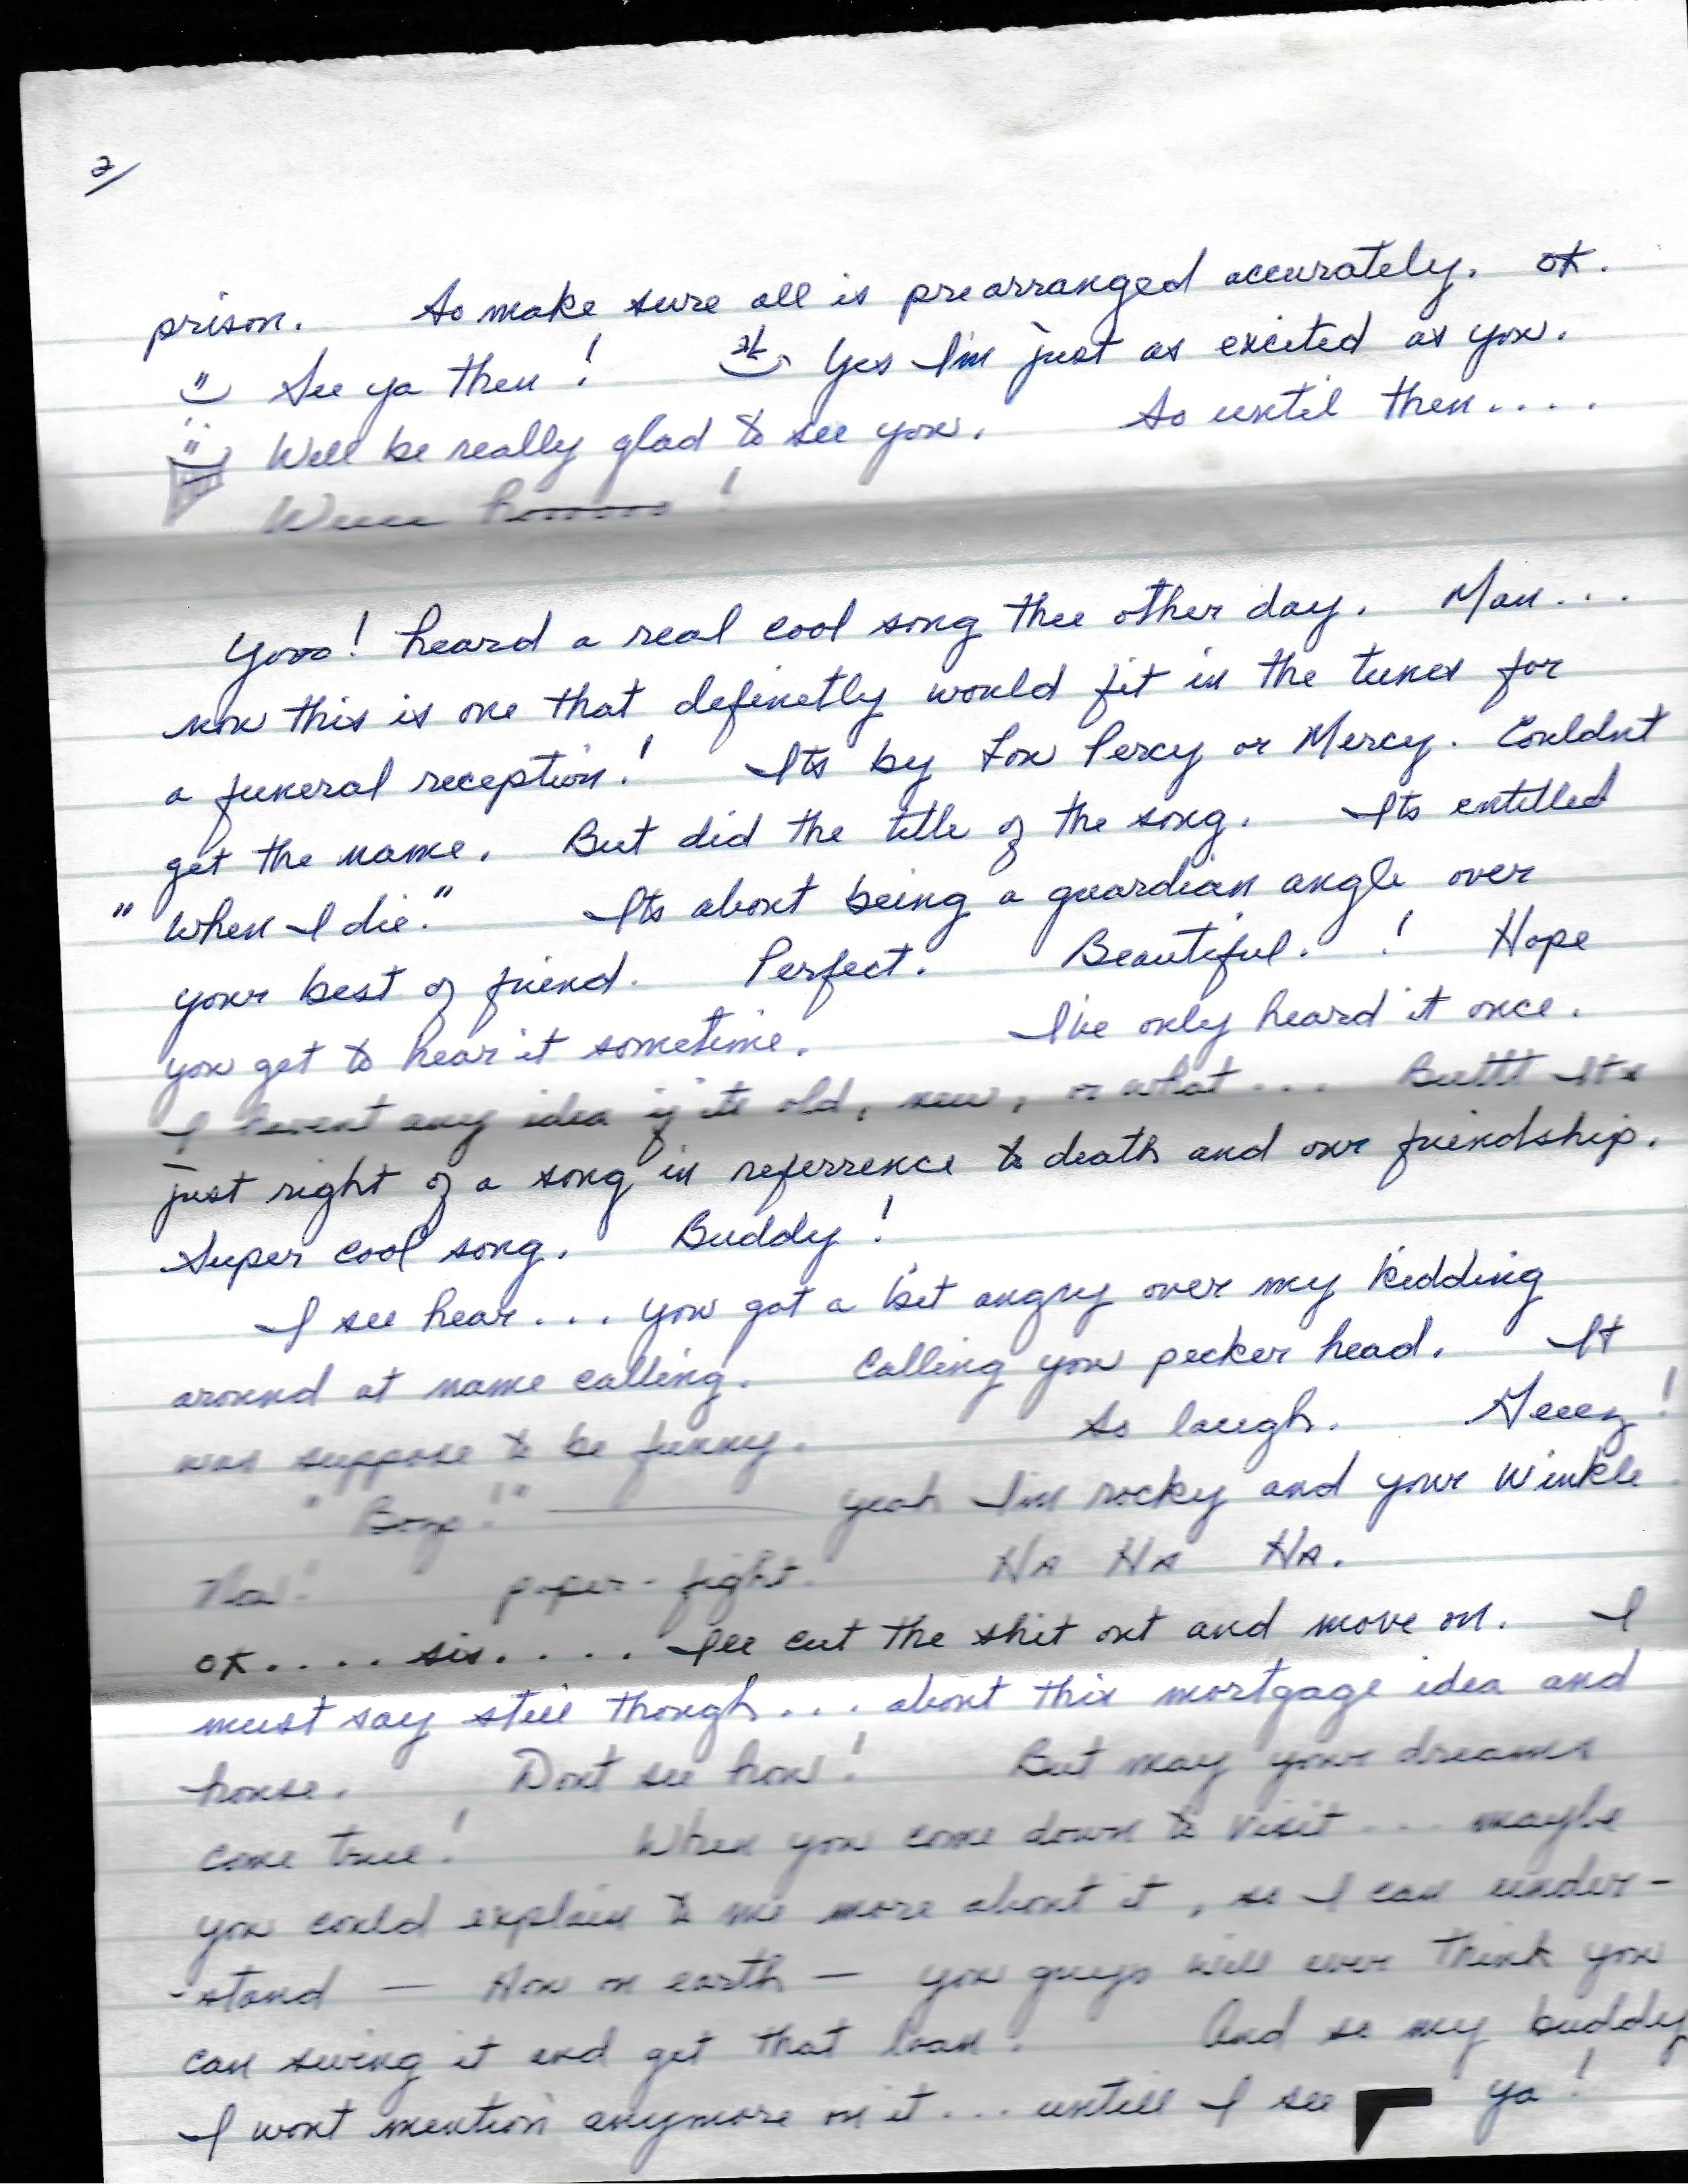 2/
prison. So make sure all is prearranged accurately. OK.
See ya then! Yes I'm just as excited as you.
Will be really glad to see you. So until then....
Weeee hooooooo!
Yooo! heard a real cool song thee other day. Man...
now this is one that definetly would fit in the tunes for
a funeral reception! Its by Lou Percy or Mercy. Couldnt
get the name. But did the title of the song. Its entitled
"When I die." Its about being a guardian angle over
your best of friend. Perfect. Beautiful.! Hope
you get to hear it sometime. I've only heard it once.
I havent any idea if its old, new, or what... Buttt Its
just right of a song in referrence to death and our friendship.
Super cool song. Buddy!
I see hear... you got a bit angry over my kidding
around at name calling. Calling you pecker head. It
was suppose to be funny. So laugh. Geeez!
yeah I'm rocky and your Winkle
paper-fight. HA HA HA.
OK.... sis..... Ill cut the shit out and move on. I
must say still though... about this mortgage idea and
house. Dont see how! But may your dreams
come true! When you come down to visit... maybe
you could explain to me more about it, so I can under-
-stand — How on earth — you guys will ever think you
can swing it and get that loan. And so my buddy
I wont mention anymore on it... untill I see ya!